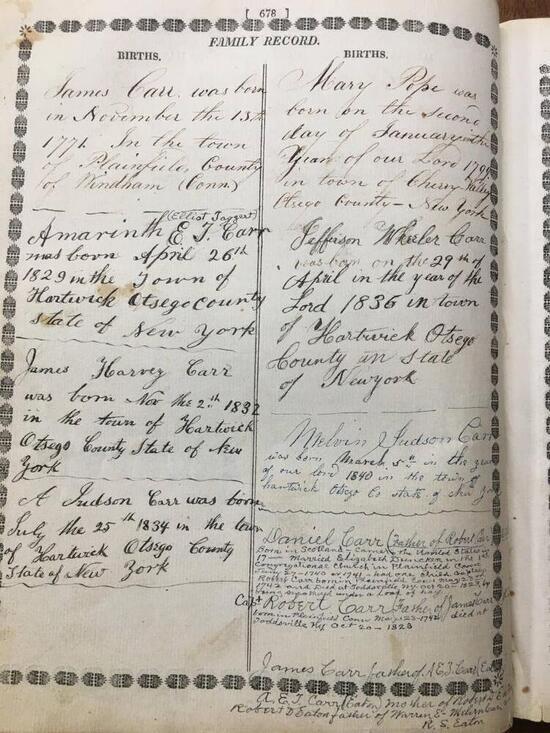 [ 678 ]
FAMILY RECORD.
BIRTHS.
James Carr was born
in November the 13th
1771. In the town
of Plainfield County
of Windham (Conn)
(Elliot Taggert)
Amarinth E. T. Carr
was born April 26th
1829 in the Town of
Hartwick Otsego County
State of New York
James Harvey Carr
was born Nov the 2nd 1832
in the town of Hartwick
Otsego County State of New
York
A Judson Carr was born
July the 25th 1834 in the town
of Hartwick Otsego County
State of New York
BIRTHS.
Mary Pope was
born on the second
day of January in the
Year of our Lord
in town of Cherry Valley
County - New York
Jefferson Wheeler Carr
was born on the 29th of
April in the year of the
Lord 1836 in town
of Hartwick Otsego
County in State
of Newyork
Melvin Judson Carr
was born March 5th in the year
of our lord 1840 in the town of
Otsego Co state of New York
Daniel Carr (Father of Robert Carr
Born in Scotland - Came to the United States in
17— Married Elizabeth in the
Congregational Church in Plainfield Conn
Robert Carr born in Plainfield Conn May 23
1742 and Died at Toddsville Ny Oct 20 - 1823
being under a Load of hay
Capt Robert Carr Father of James Carr
born in Plainfield Conn May-23-1742 died at
Toddsville Ny Oct 20 - 1823
James Carr father of A E T Carr
A. E. T. Carr (Eaton) mother of Robert
Robert D Eaton father of Warren E-
R. S. Eaton